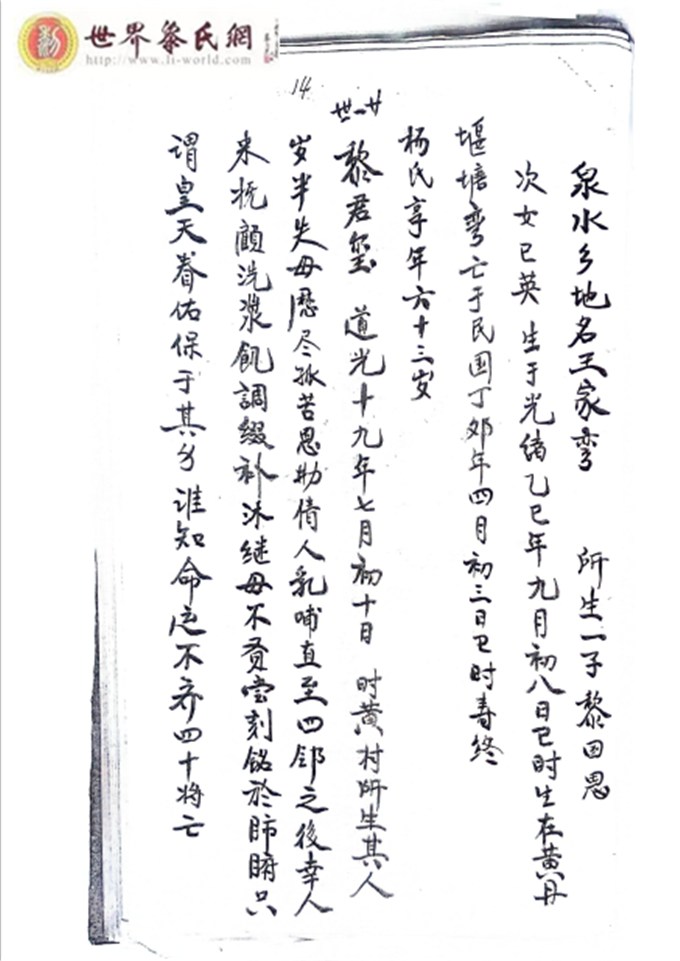 世界黎氏網
http://www.li-world.com
14
泉水乡地名王家弯 所生一子黎因思
次女已英生于光绪乙巳年九月初八日巳时生在黄丹
堰塘弯亡于民国丁卯年四月初三日巳时寿终
杨氏享年六十三岁
廿一世 黎君玺 道光十九年七月初十日 时黄村所生其人
岁半失母歷尽孤苦思勘倩人乳哺直至四邻之後幸人
来抚顧洗浆飢調缀补沐继母不责尝刻铭於肺腑只
谓皇天眷佑保于其乡谁知命运不齐四十将亡